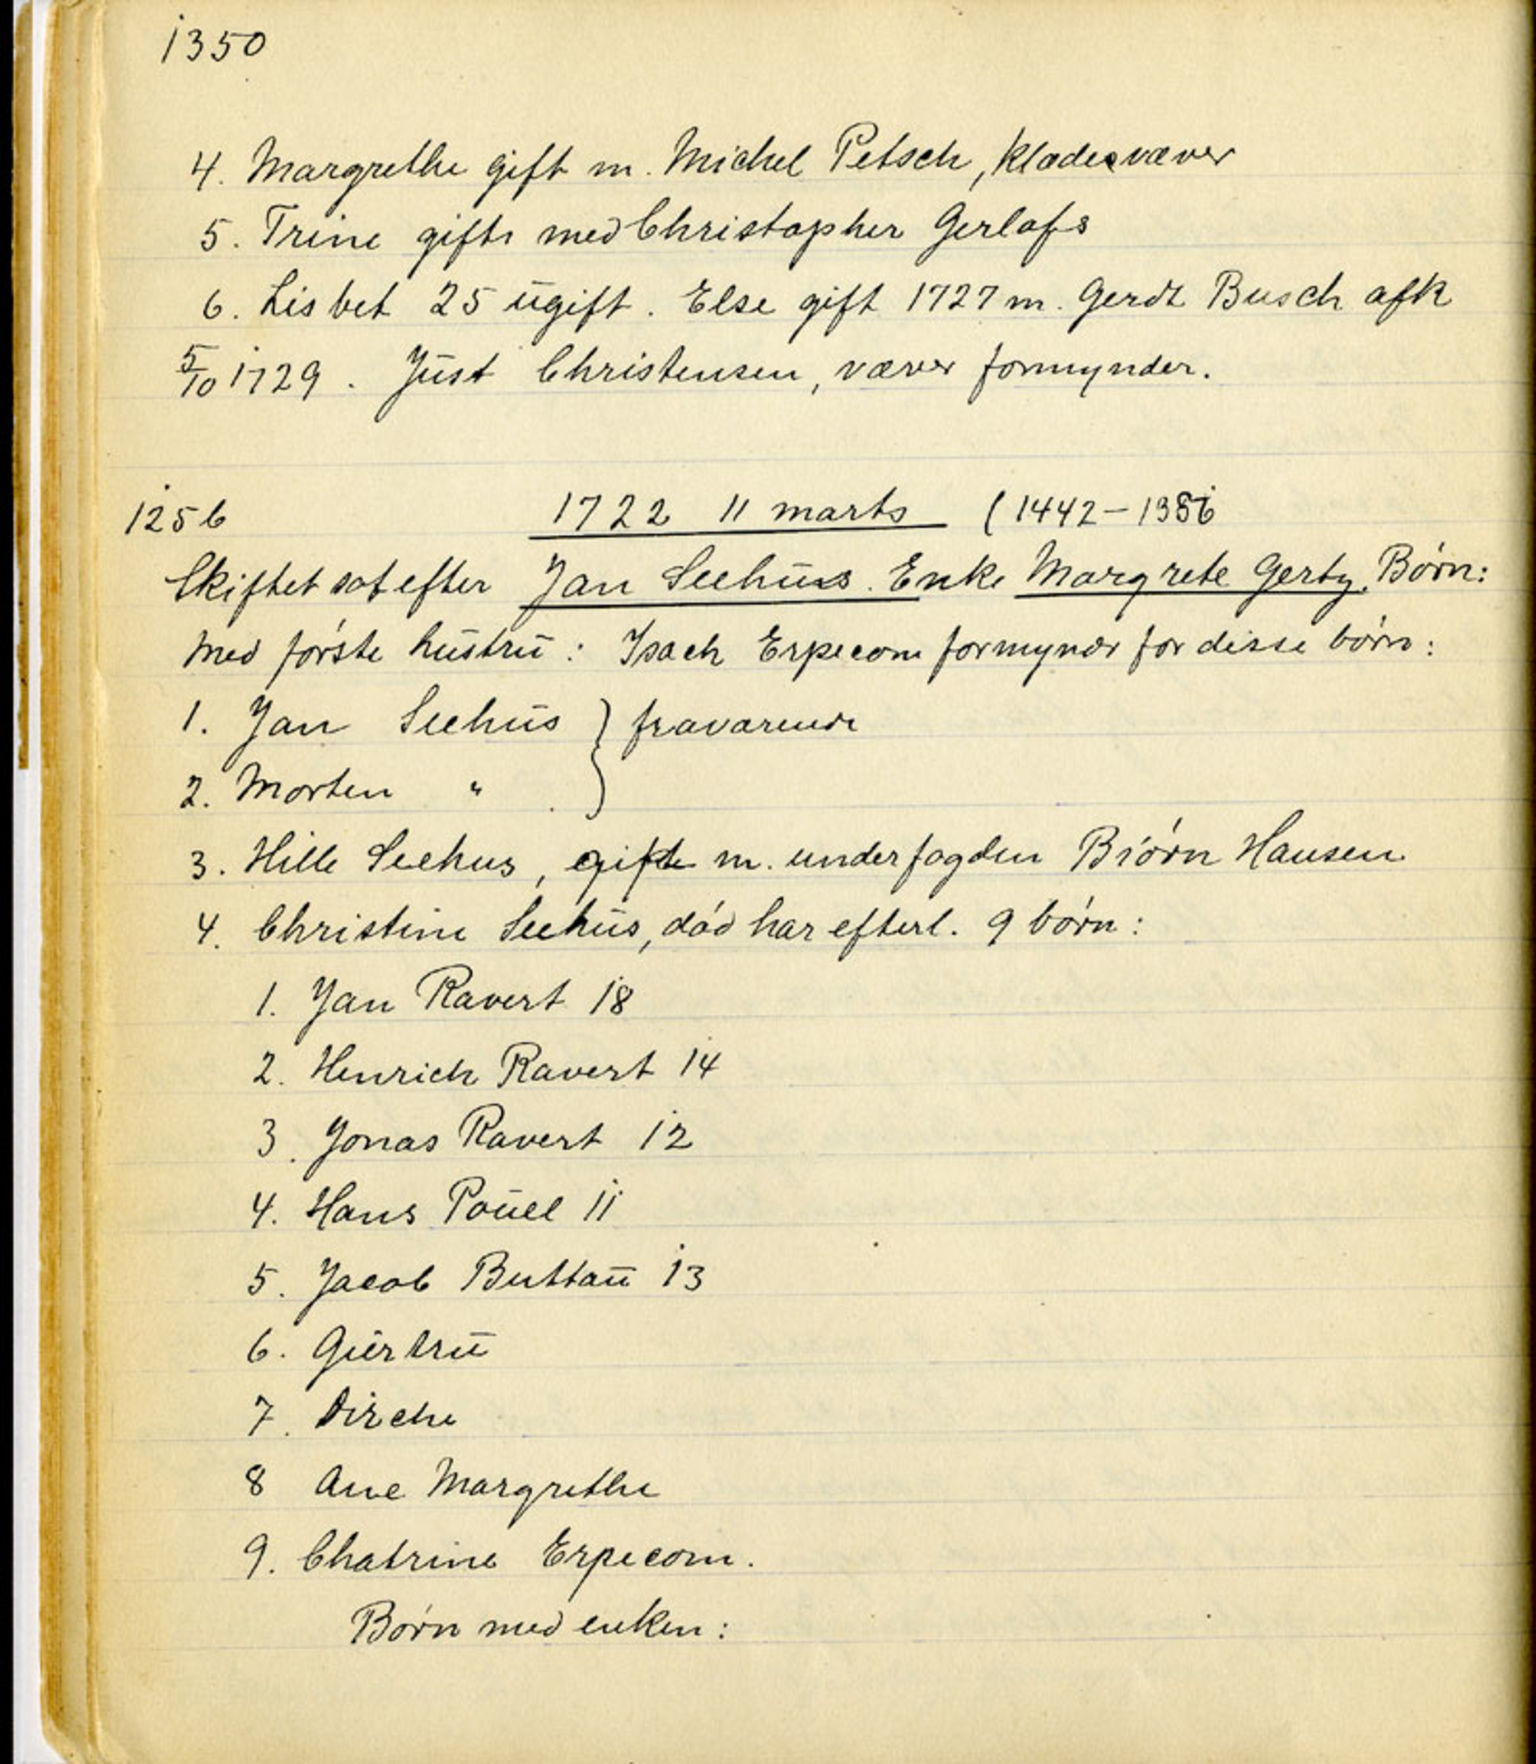 1350
4. Margrethe gift m. Michel Petsch, klædesvæver
5. Trine gift med Christopher Gerlofs
6. Lisbet 25 ugift. Else gift 1727 m. Gerdt Busch afk
5/10 1729. Just Christensen, væver formynder.
1256 1722 11 marts (1442-
Skiftet sat efter Jan Seehus. Enke Margrete Gerty. Børn:
med første hustru: Isach Erpecom formyndr for disse børn:
1. Jan Seehus } fraværende
2. Morten "
3. Hille Seehus, gift m. underfogden Biørn Hansen
4. Christine Seehus, død har efterl. 9 børn:
1. Jan Ravert 18
2. Henrich Ravert 14
3. Jonas Ravert 12
4. Hans Pouel 11
5. Jacob Buttau 13
6. Giertru
7. Dirche
8 Ane Margrethe
9. Chatrine Erpecom.
Børn med enken: